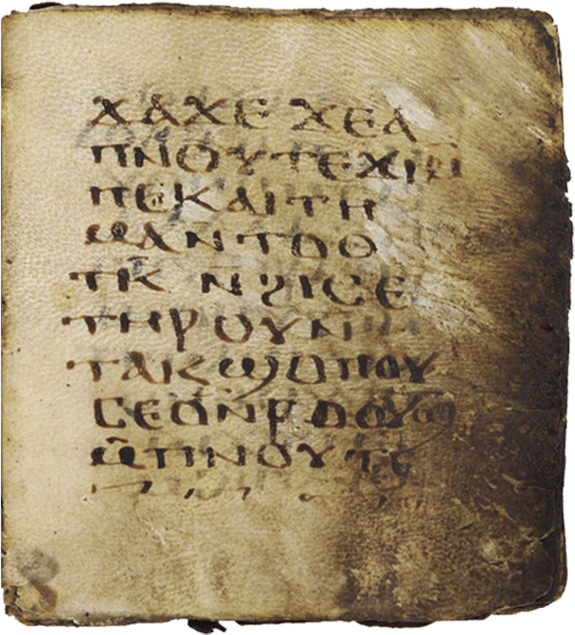 ϫⲁϫⲉ ϫⲉⲁ
ⲡⲛⲟⲩⲧⲉϫⲓⲙ̄
ⲡⲉⲕⲁⲓⲧⲏ
ⲙⲁⲛⲧⲟⲟ
ⲧⲕ ⲛ̄ϩⲓⲥⲉ
ⲧⲏⲣⲟⲩⲛ̄
ⲧⲁⲕϣⲟⲡⲟⲩ
ⲥⲉⲟⲛⲣⲟⲟⲩϣ
ⲙ̄ⲡⲛⲟⲩⲧⲉ